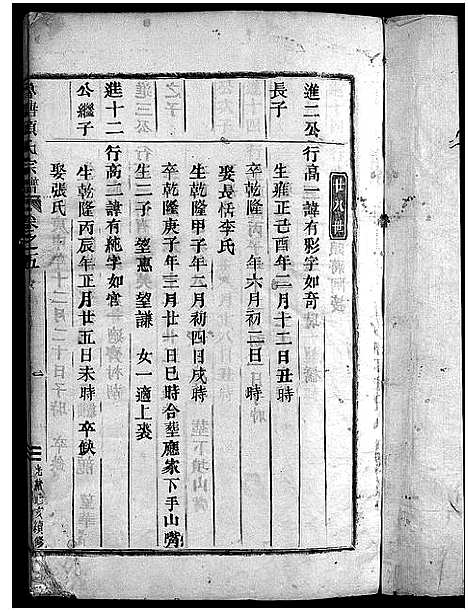 廿八世
進二公行高一諱有彩字如奇
長子
生雍正己酉年二月十二日丑時
卒乾隆丙午年六月初二日時
娶長恬李氏
生乾隆甲子年二月初四日戌時
卒乾隆庚子年三月廿一日巳時合塟應家下手山嘴
生二子 望惠 望謙 女一適上裘
進十二行高二諱有純字如官
公繼子
生乾隆丙辰年正月廿五日未時 卒缺
娶張氏
氏宗譜 卷之五
一